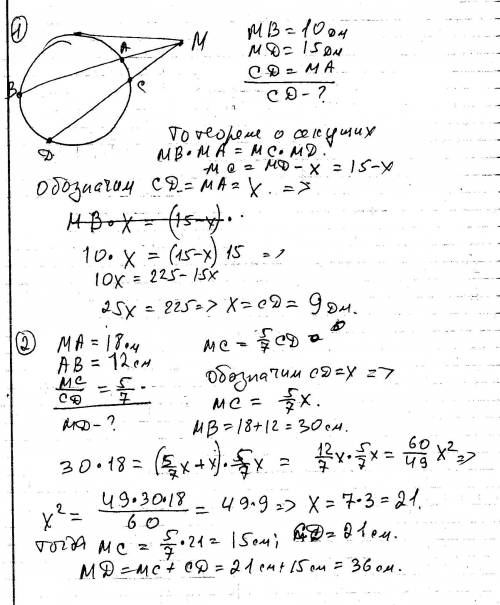 1
MB = 10 дм
MD = 15 дм
CD = MA
CD - ?
A
M
B
C
D
По теореме о секущих
MB · MA = MC · MD.
MC = MD - x = 15 - x
Обозначим CD = MA = X. =>
MB · X = (15-x) ·
10 · x = (15-x) 15 =>
10x = 225 - 15x
25x = 225 => X = CD = 9 дм.
2
MA = 18 см
MC = 5/7 CD
AB = 12 см
MC/CD = 5/7.
Обозначим CD = x =>
MC = 5/7 x.
MD - ?
MB = 18 + 12 = 30 см.
30 · 18 = (5/7 x + x) · 5/7 x = 12/7 x · 5/7 x = 60/49 x² =>
x² = 49·30·18/60 = 49 · 9 => X = 7·3 = 21.
тогда MC = 5/7 · 21 = 15 см; CD = 21 см.
MD = MC + CD = 21 см + 15 см = 36 см.